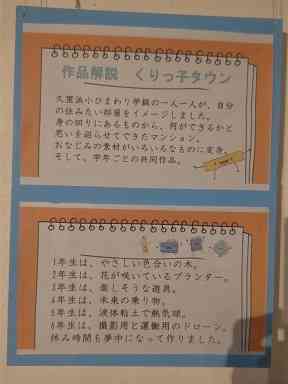 作品解説　くりっ子タウン
久里浜小ひまわり学級の一人一人が、自分
の住みたい部屋をイメージしました。
身の回りにあるものから、何ができるかと
思いを巡らせてできたマンション。
おなじみの素材がいろいろなものに変身。
そして、学年ごとの共同作品。
1年生は、やさしい色合いの木。
2年生は、花が咲いているプランター。
3年生は、楽しそうな遊具。
4年生は、未来の乗り物。
5年生は、液体粘土で熱気球。
6年生は、撮影用と運搬用のドローン。
休み時間も夢中になって作りました。